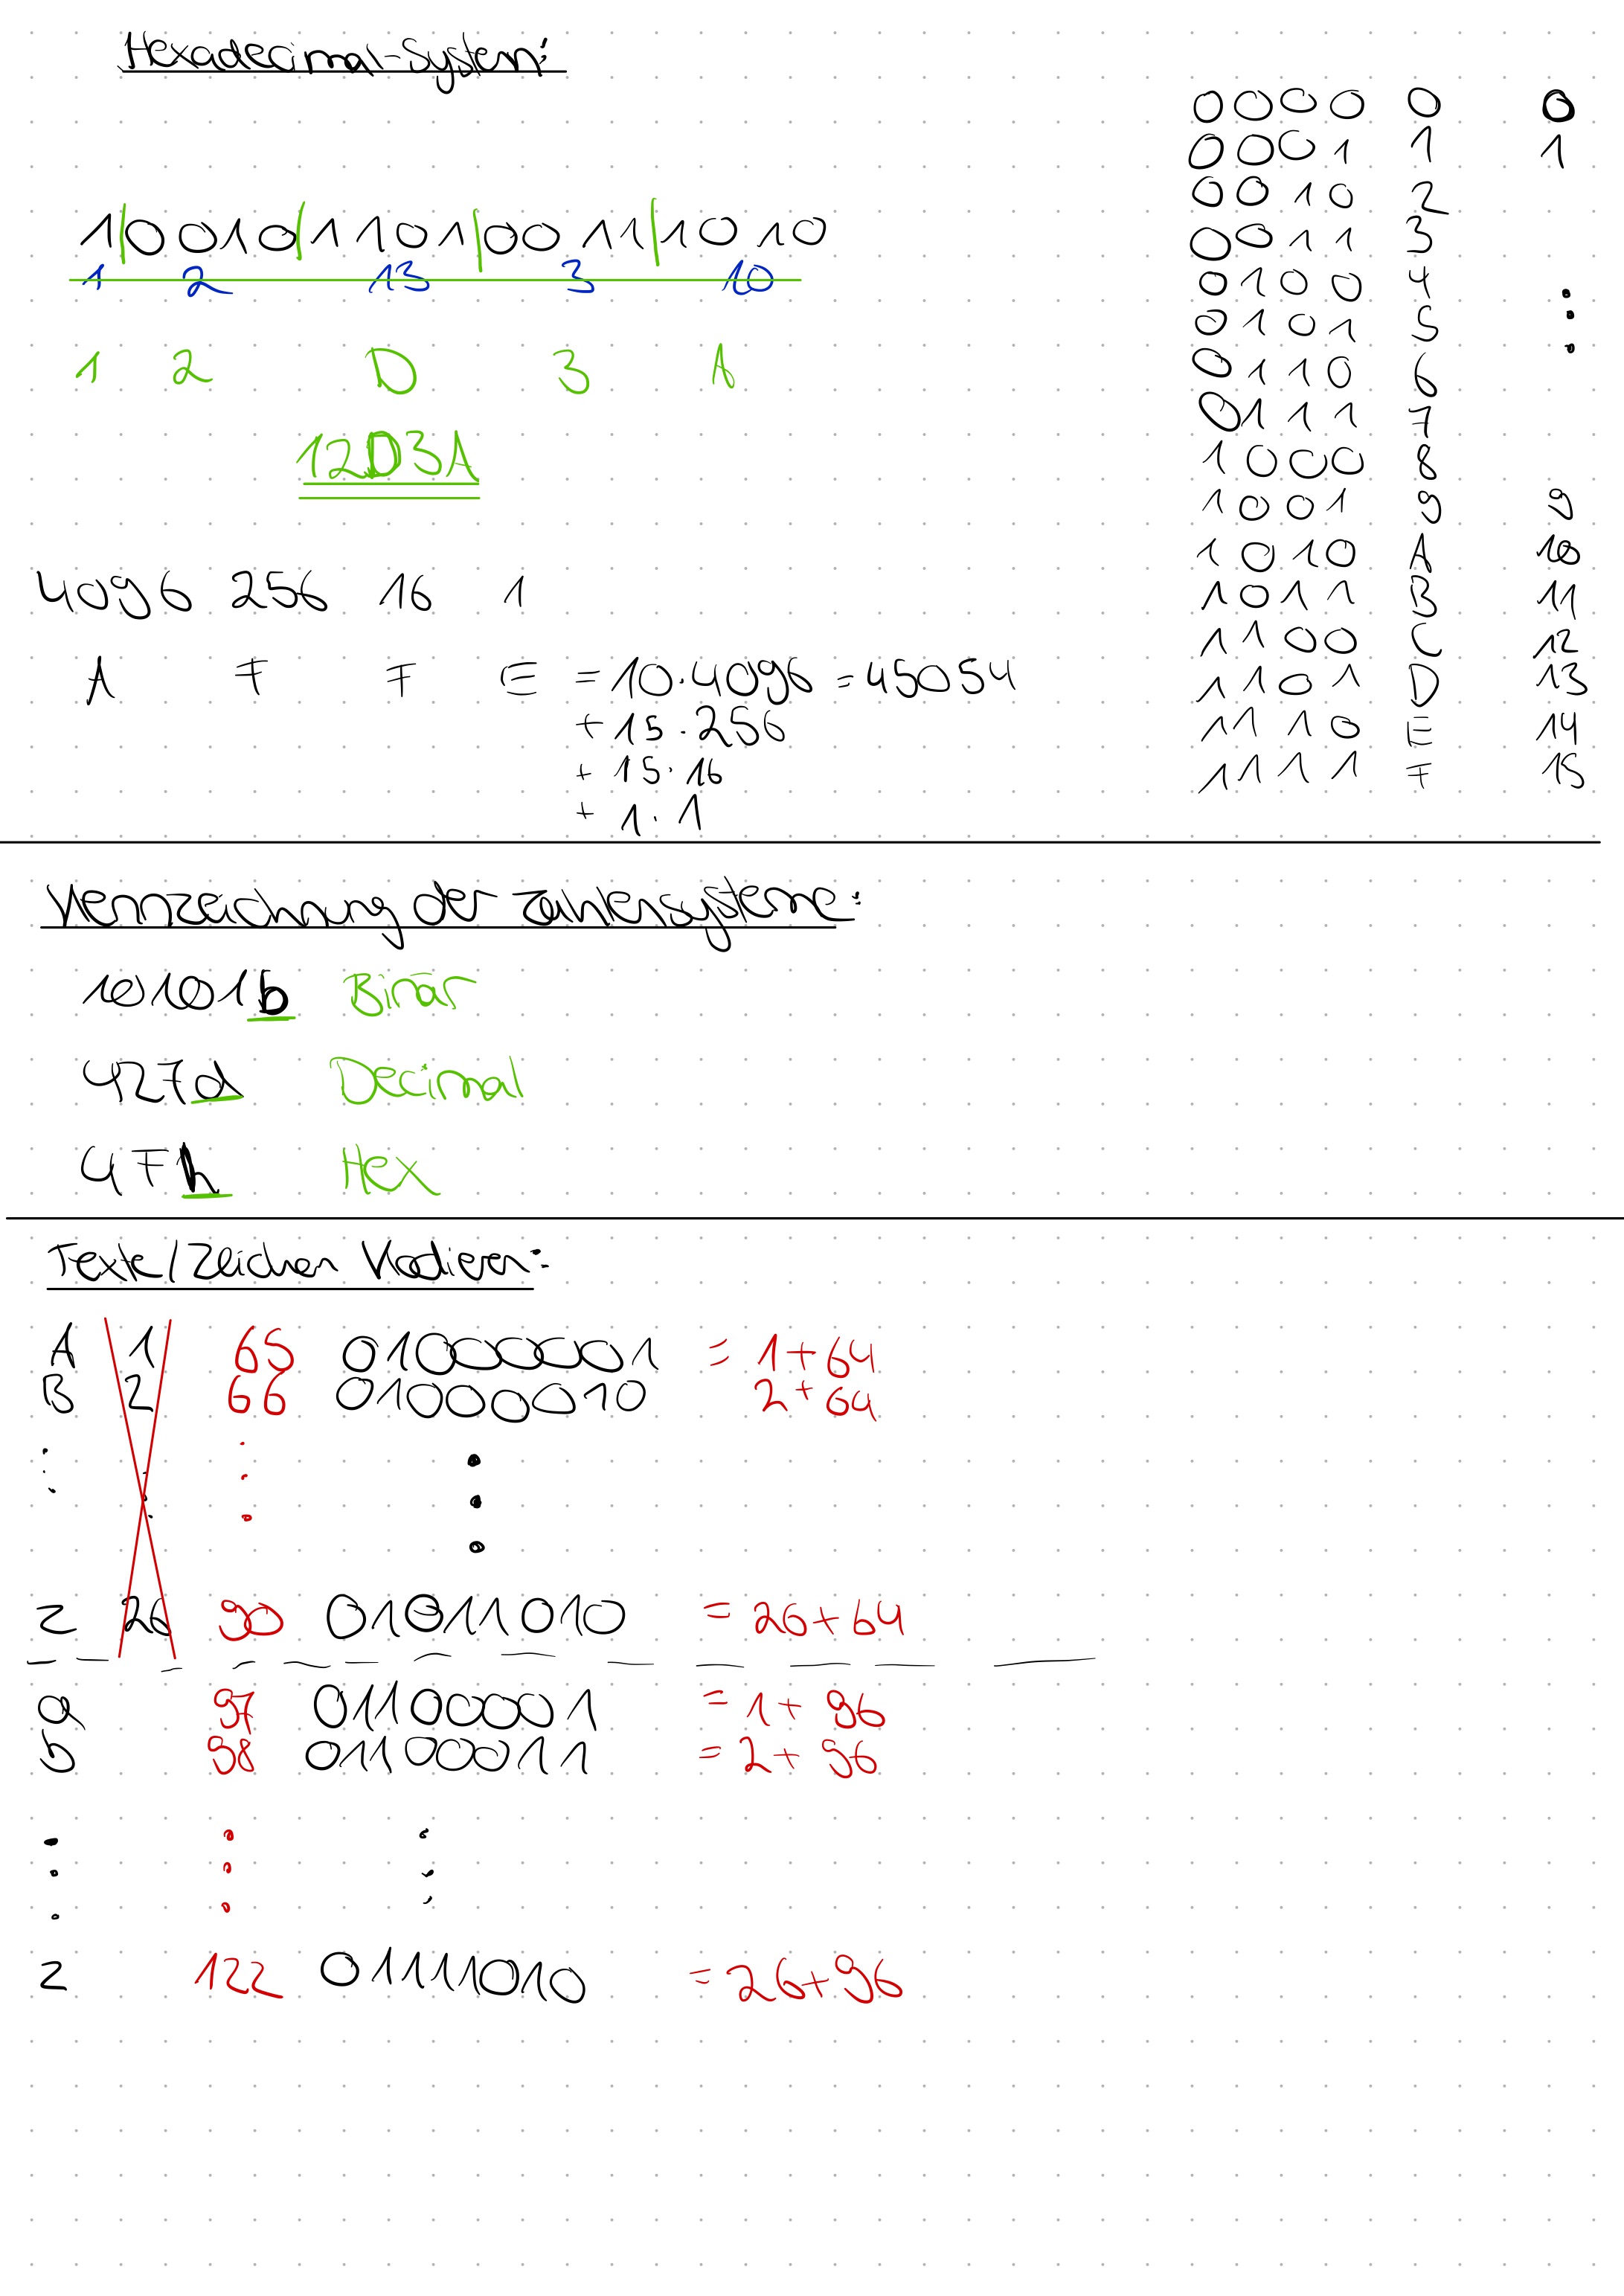 Hexadecimal-System:
1|0010|1101|0011|1010
1 2 13 3 10
1 2 D 3 A
12D3A
4096 256 16 1
A F F E = 10·4096 = 45054
+ 15·256
+ 15·16
+ 1·1
0000 0 0
0001 1 1
0010 2
0011 3
0100 4
0101 5
0110 6
0111 7
1000 8
1001 9 9
1010 A 10
1011 B 11
1100 C 12
1101 D 13
1110 E 14
1111 F 15
Kennzeichnung der Zahlensysteme:
10101b Binär
427d Decimal
4Fh Hex
Texte/Zeichen Kodieren:
A 1 65 01000001 = 1+64
B 2 66 01000010 2+64
Z 26 90 01011010 = 26+64
a 97 01100001 = 1+96
b 98 01100011 = 2+96
z 122 01111010 = 26+96